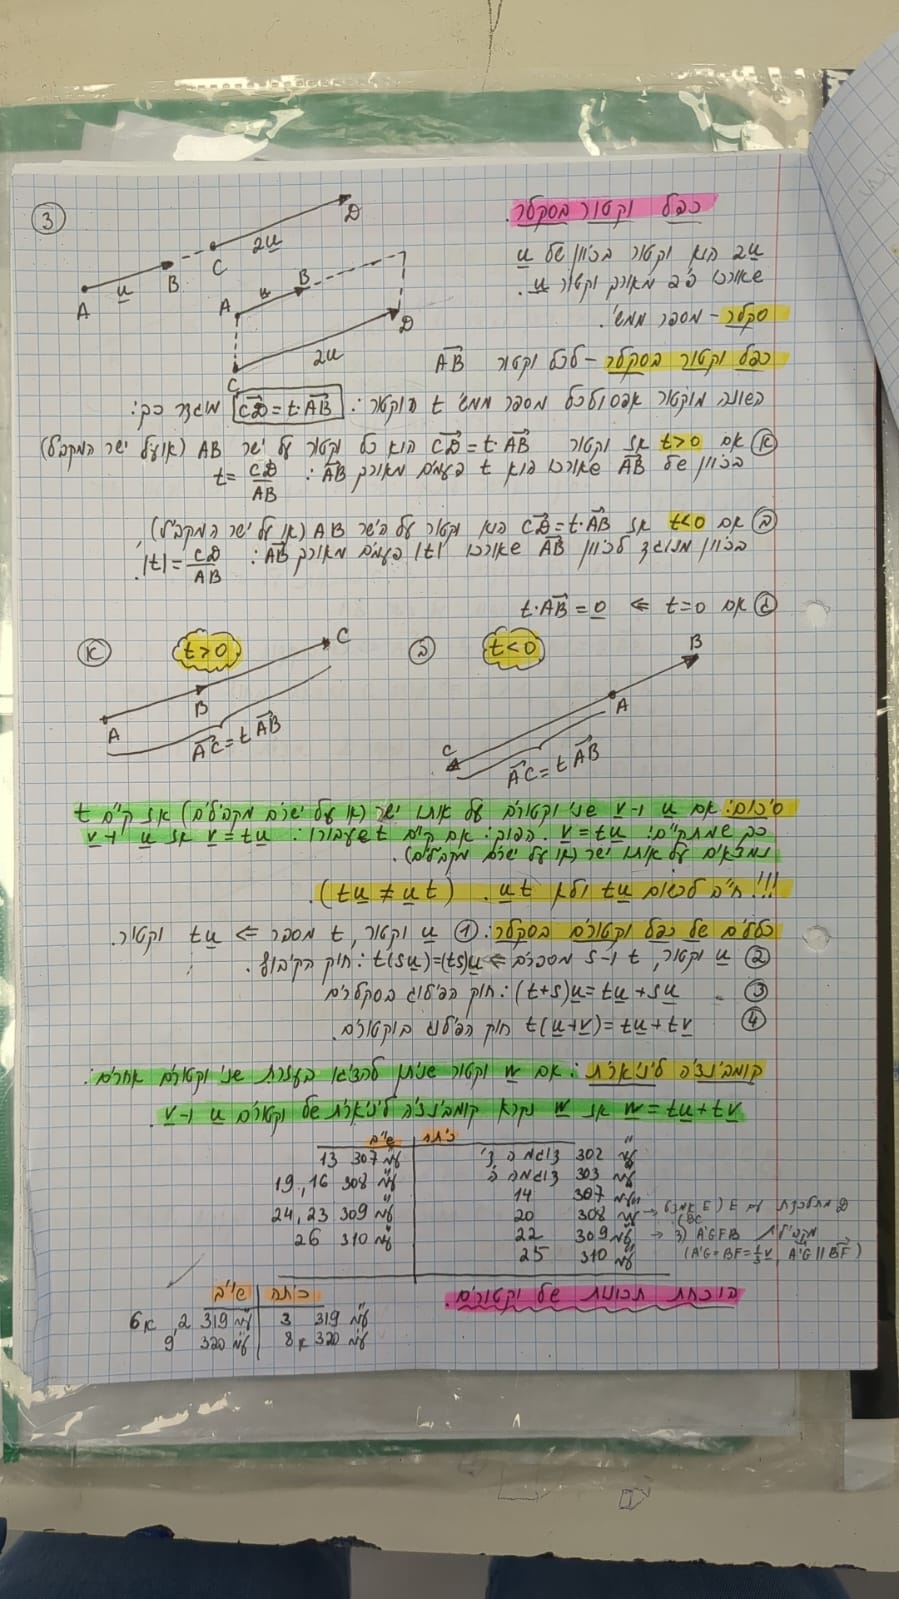 3
כפל וקטור בסקלר.
2u הוא וקטור בכוון של u
שאורכו פי 2 מאורך וקטור u.
A u B C 2u D
A u B
C 2u D
סקלר - מספר ממשי.
כפל וקטור בסקלר - לכל וקטור AB
השונה מוקטור אפס ולכל מספר ממשי t הוקטור: CD = t·AB מוגדר כך:
א אם t>0 אז וקטור CD = t·AB הוא כל וקטור על ישר AB (או על ישר המקביל)
בכוון של AB שאורכו הוא t פעמים מאורך AB: t = CD/AB
ב אם t<0 אז CD = t·AB הוא וקטור על הישר AB (או על ישר המקביל),
בכוון מנוגד לכוון AB שאורכו |t| פעמים מאורך AB: |t| = CD/AB.
ג אם t=0 ⇐ t·AB = 0
א t>0
A B C
AC = t AB
ב t<0
B A C
AC = t AB
סיכום: אם u ו-v שני וקטורים על אותו ישר (או על ישרים מקבילים) אז קיים t
כך שמתקיים: v = tu. הפוך: אם קיים t שעבורו: v = tu אז u ו-v
נמצאים על אותו ישר (או על ישרים מקבילים).
!!! חייב לרשום tu ולא ut. (tu ≠ ut).
כללים של כפל וקטורים בסקלר: 1 u וקטור, t מספר ⇐ tu וקטור.
2 u וקטור, t ו-s מספרים ⇐ t(su)=(ts)u: חוק הקיבוץ.
3 (t+s)u = tu + su: חוק הפילוג בסקלרים
4 t(u+v) = tu + tv חוק הפילוג בוקטורים.
קומבינציה לינארית: אם w וקטור שניתן להציגו בעזרת שני וקטורים אחרים:
w = tu + tv אז w נקרא קומבינציה לינארית של וקטורים u ו-v.
כיתה ש"ב
עמ' 302 דוגמה ד' עמ' 307 13
עמ' 303 דוגמה ה עמ' 308 16, 19
עמ' 307 14 עמ' 309 23, 24
עמ' 308 20 עמ' 310 26
עמ' 309 22
עמ' 310 25
D מתלכדת עם E (E אמצע BC)
3) A'GFB מקבילית
(A'G = BF = ⅓v, A'G || BF)
הוכחת תכונות של וקטורים.
כיתה ש"ב
עמ' 319 3 עמ' 319 2, 6א
עמ' 320 8א עמ' 320 9